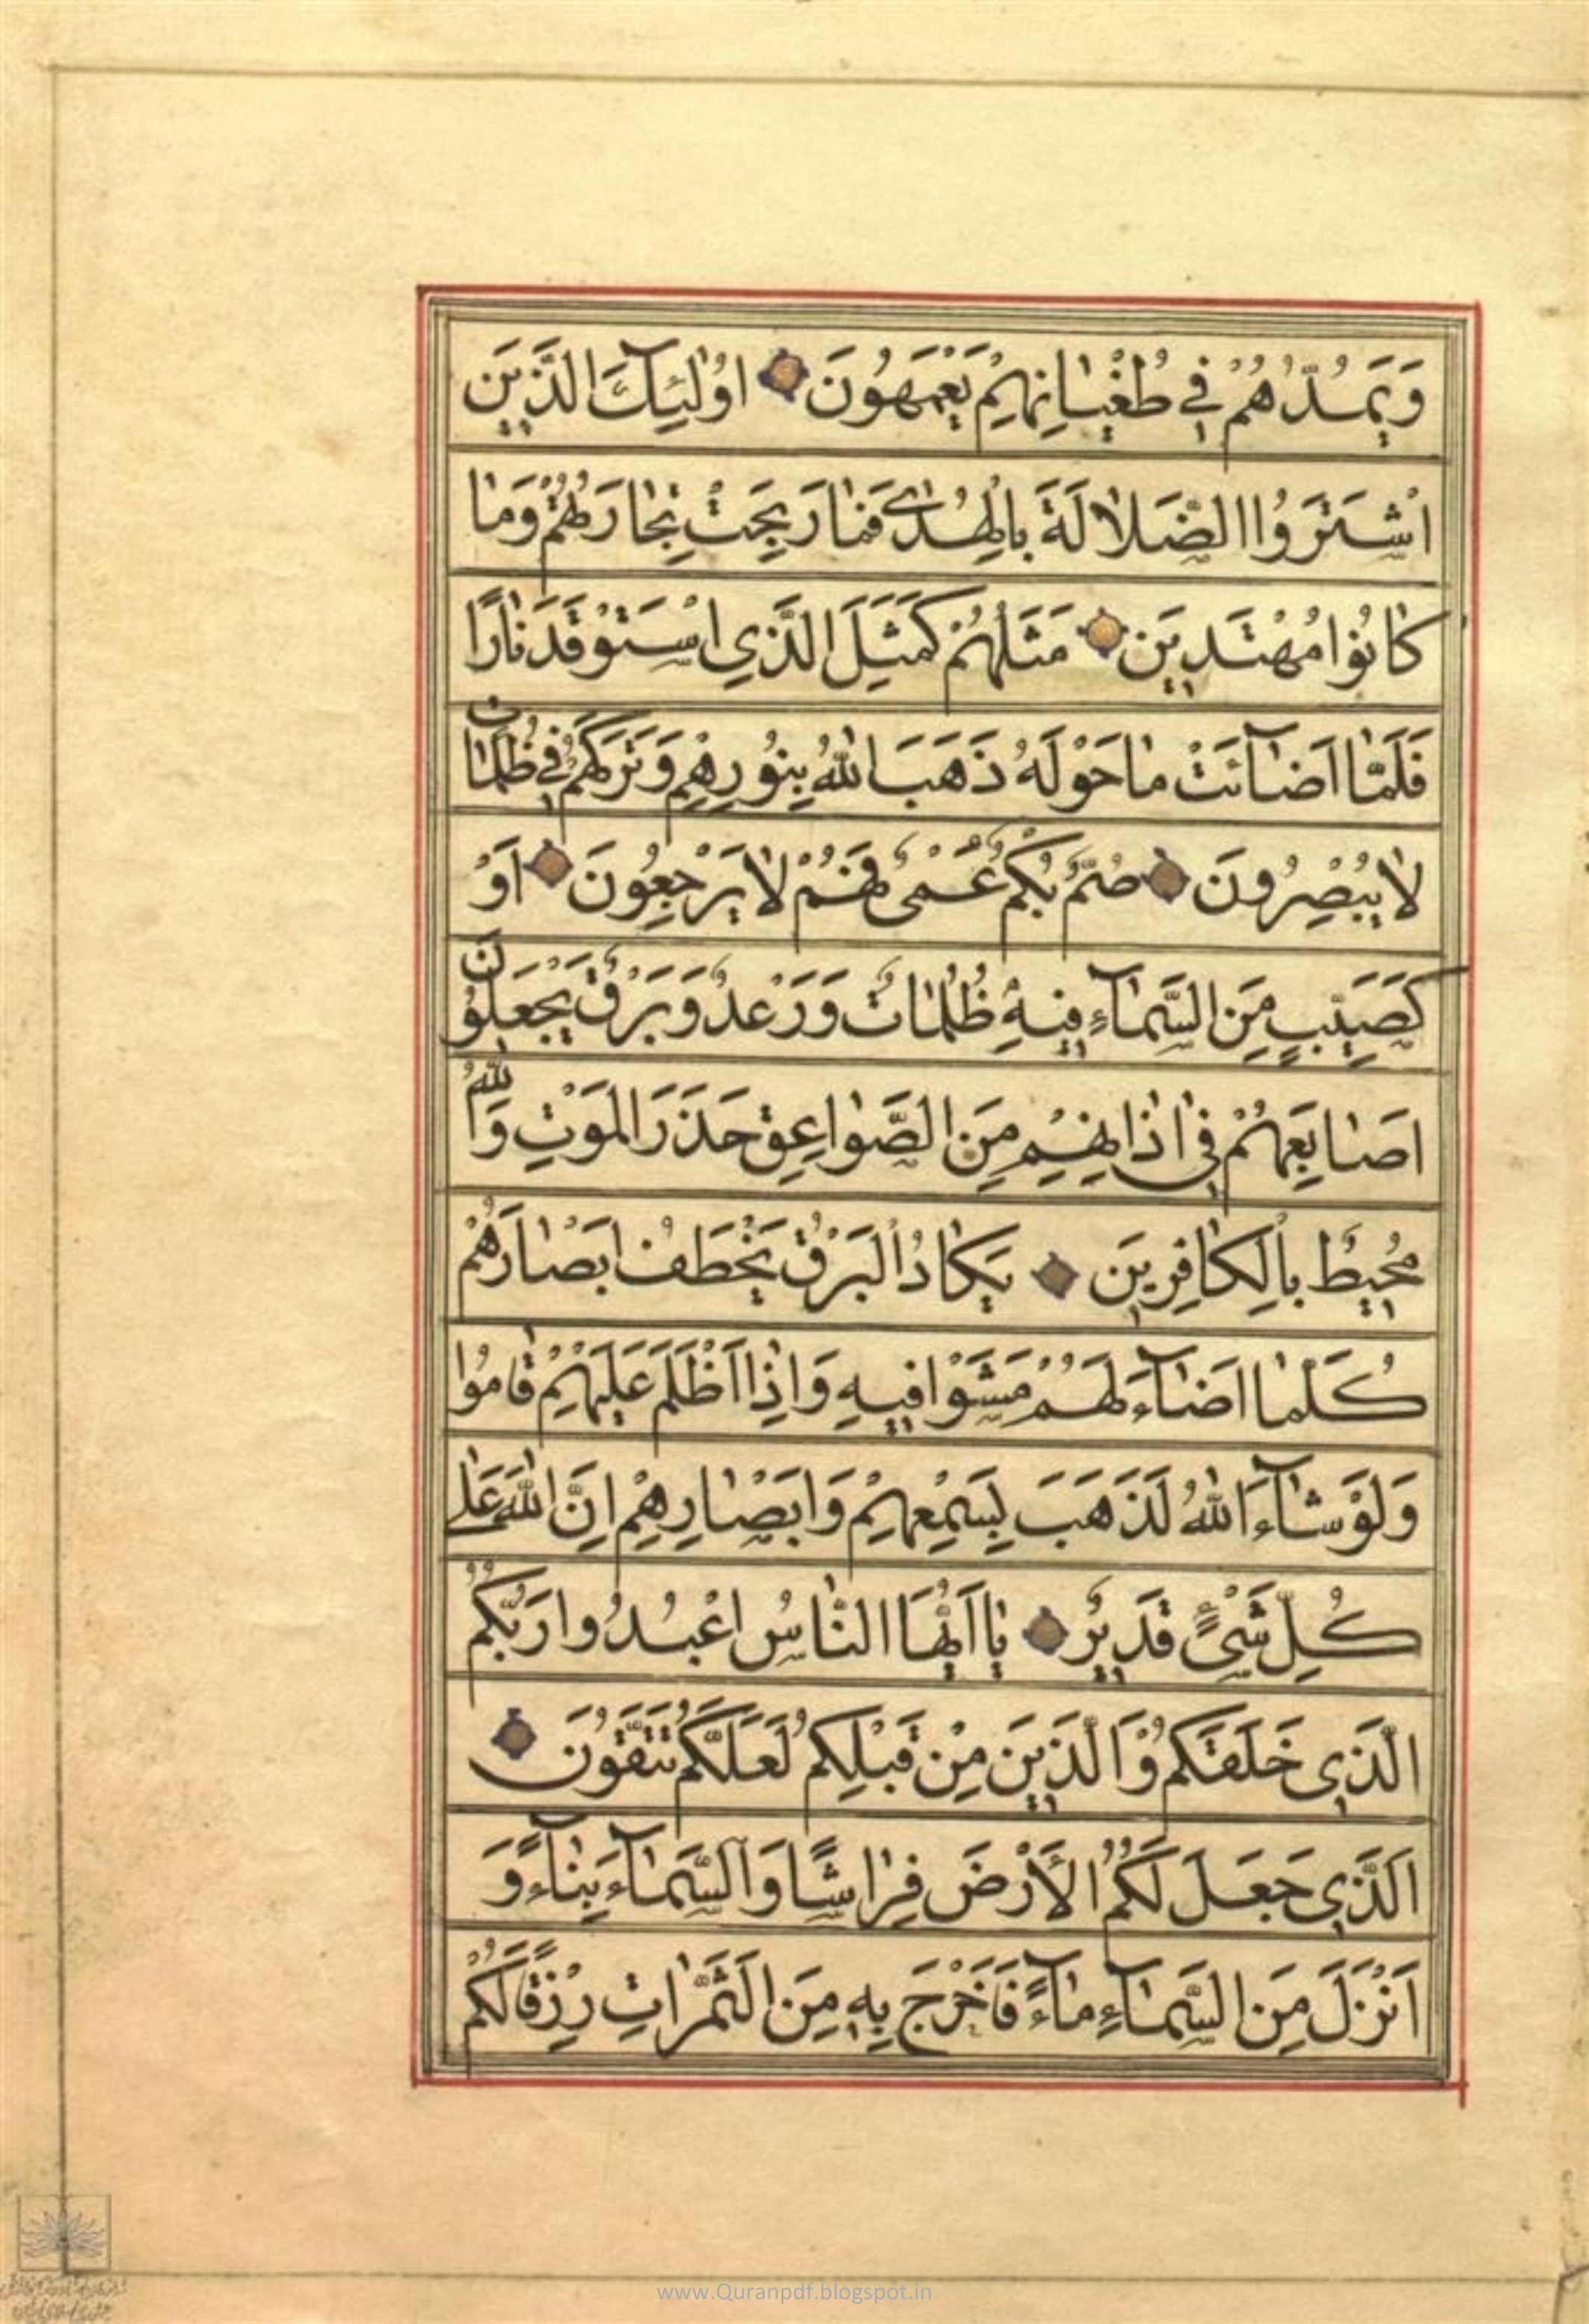 وَيَمُدُّهُمْ فِي طُغْيَانِهِمْ يَعْمَهُونَ اُولٰئِكَ الَّذِينَ
اشْتَرَوُا الضَّلَالَةَ بِالْهُدَى فَمَا رَبِحَتْ تِجَارَتُهُمْ وَمَا
كَانُوا مُهْتَدِينَ مَثَلُهُمْ كَمَثَلِ الَّذِي اسْتَوْقَدَ نَارًا
فَلَمَّا اَضَآئَتْ مَا حَوْلَهُ ذَهَبَ اللّٰهُ بِنُورِهِمْ وَتَرَكَهُمْ فِي ظُلُمَاتٍ
لَا يُبْصِرُونَ صُمٌّ بُكْمٌ عُمْىٌ فَهُمْ لَا يَرْجِعُونَ اَوْ
كَصَيِّبٍ مِنَ السَّمَآءِ فِيهِ ظُلُمَاتٌ وَرَعْدٌ وَبَرْقٌ يَجْعَلُونَ
اَصَابِعَهُمْ فِي اٰذَانِهِمْ مِنَ الصَّوَاعِقِ حَذَرَ الْمَوْتِ وَاللّٰهُ
مُحِيطٌ بِالْكَافِرِينَ يَكَادُ الْبَرْقُ يَخْطَفُ اَبْصَارَهُمْ
كُلَّمَا اَضَآءَ لَهُمْ مَشَوْا فِيهِ وَاِذَا اَظْلَمَ عَلَيْهِمْ قَامُوا
وَلَوْ شَآءَ اللّٰهُ لَذَهَبَ بِسَمْعِهِمْ وَاَبْصَارِهِمْ اِنَّ اللّٰهَ عَلَى
كُلِّ شَىْءٍ قَدِيرٌ يَا اَيُّهَا النَّاسُ اعْبُدُوا رَبَّكُمُ
الَّذِي خَلَقَكُمْ وَالَّذِينَ مِنْ قَبْلِكُمْ لَعَلَّكُمْ تَتَّقُونَ
اَلَّذِي جَعَلَ لَكُمُ الْأَرْضَ فِرَاشًا وَالسَّمَآءَ بِنَآءً وَ
اَنْزَلَ مِنَ السَّمَآءِ مَآءً فَاَخْرَجَ بِهِ مِنَ الثَّمَرَاتِ رِزْقًا لَكُمْ
www.Quranpdf.blogspot.in